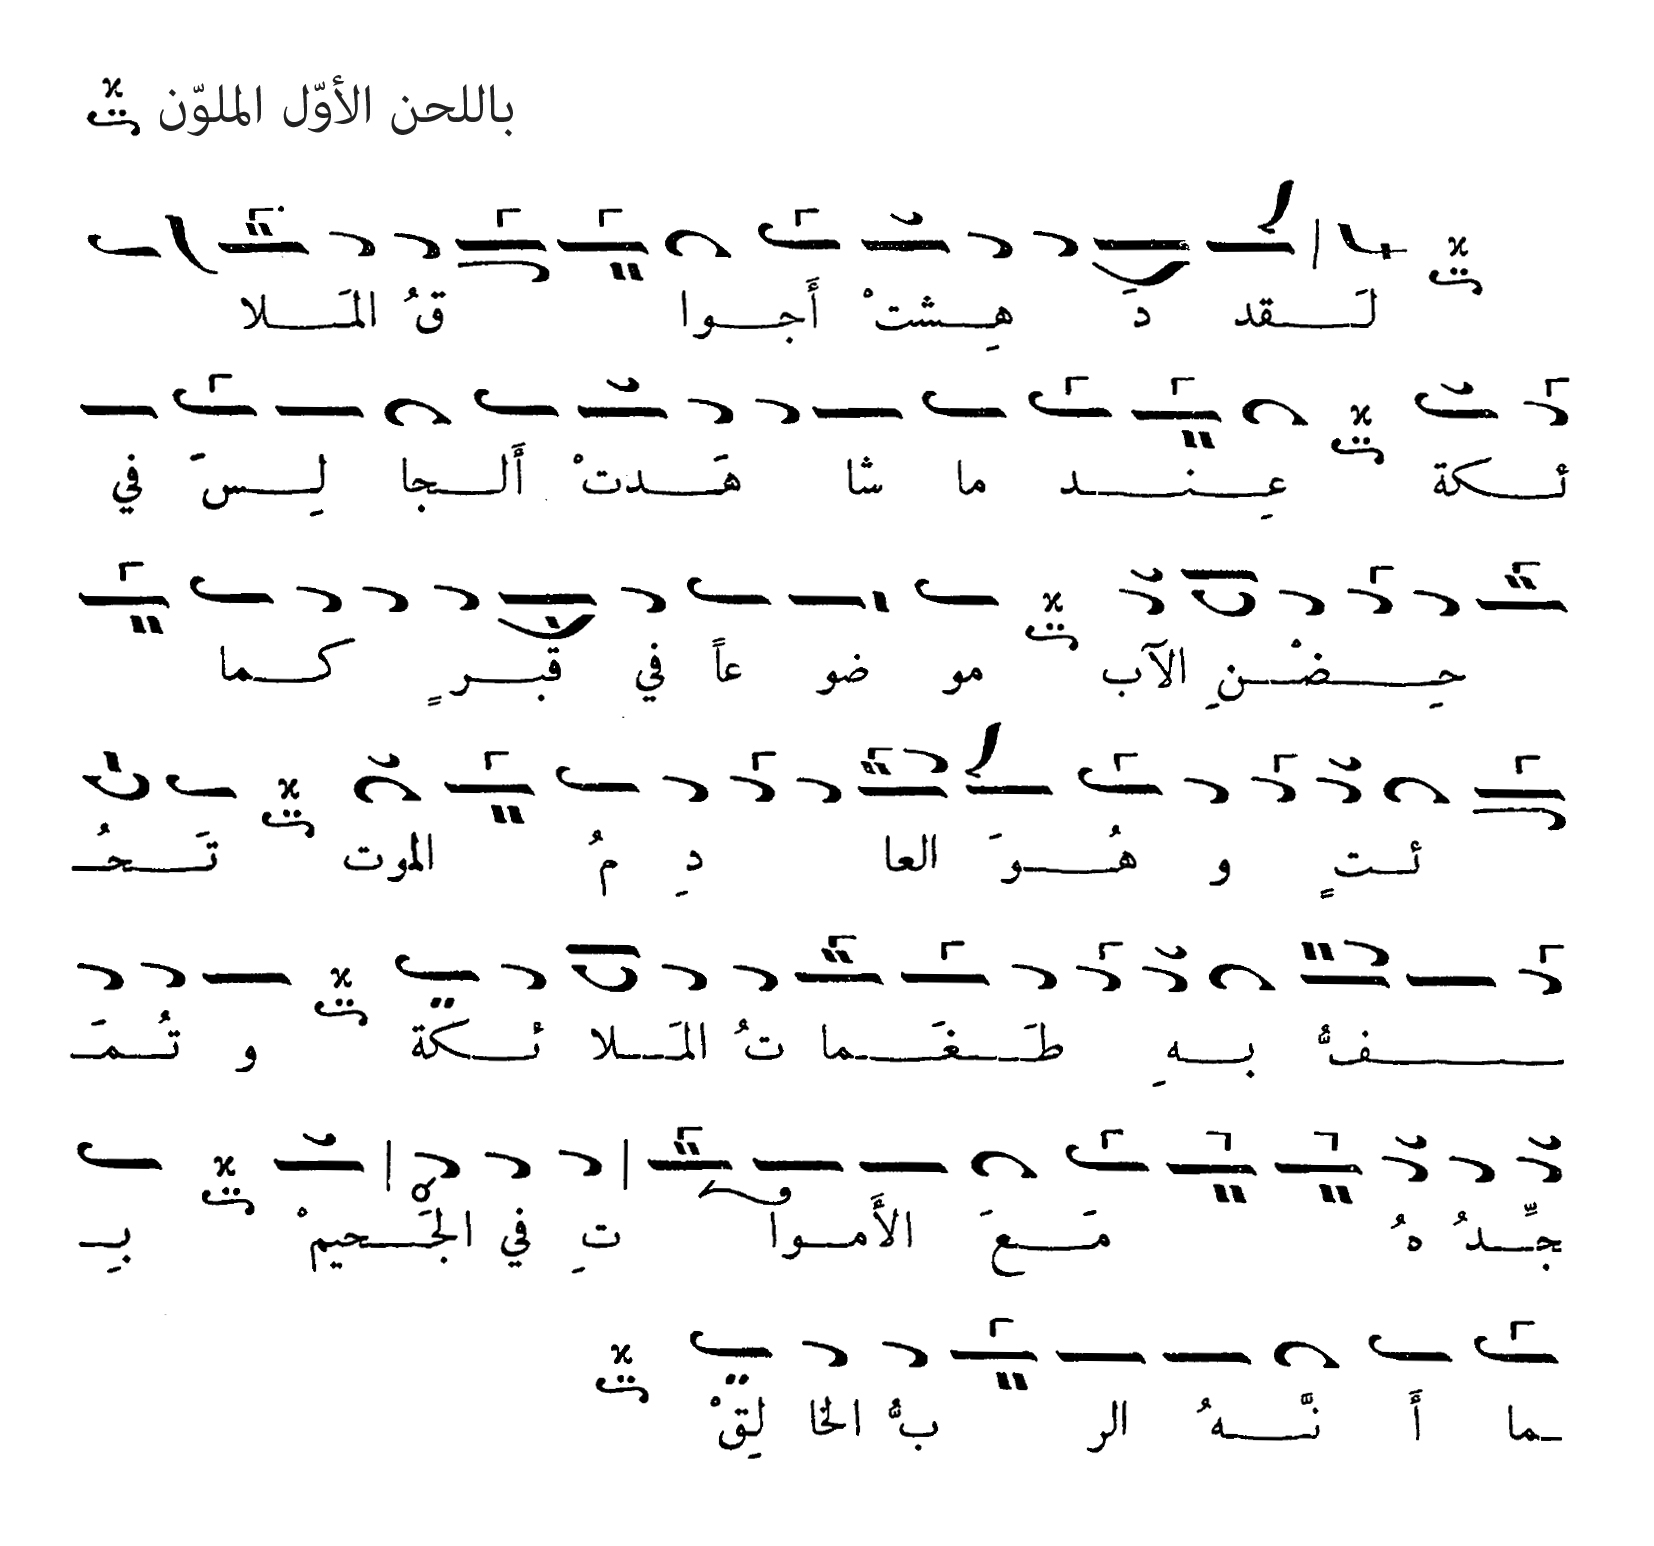 باللحن الأوّل الملوّن
لَـقد دَ هِـشتْ أَجـوا قُ المَـلا
ئـكة عِـنـد ما شا هَـدتْ أَلـجا لِـسَ في
حِـضْـنِ الآب مو ضو عاً في قَبـرٍ كـما
ئـتٍ و هُـوَ العا دِ مُ الموت تَـحُـ
ـفُّ بـهِ طَـغَـما تُ المَـلا ئـكة و تُـمَـ
جِّـدُ هُ مَـعَ الأَمـوا تِ في الجَـحيمْ بِـ
ـما أَ نَّـهُ الر بُّ الخا لِقْ